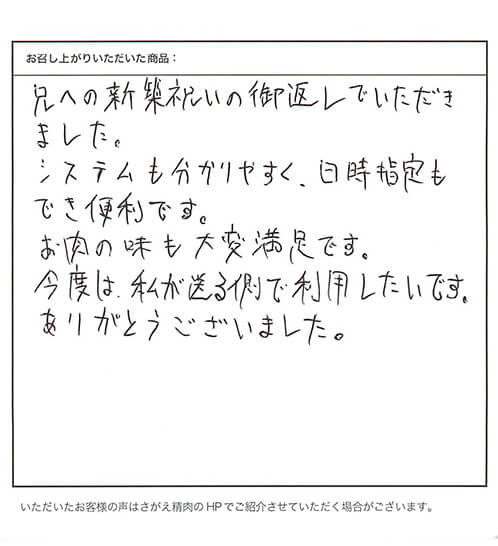 お召し上がりいただいた商品：
兄への新築祝いの御返しでいただき
ました。
システムも分かりやすく、日時指定も
でき便利です。
お肉の味も大変満足です。
今度は、私が送る側で利用したいです。
ありがとうございました。
いただいたお客様の声はさがえ精肉のHPでご紹介させていただく場合がございます。